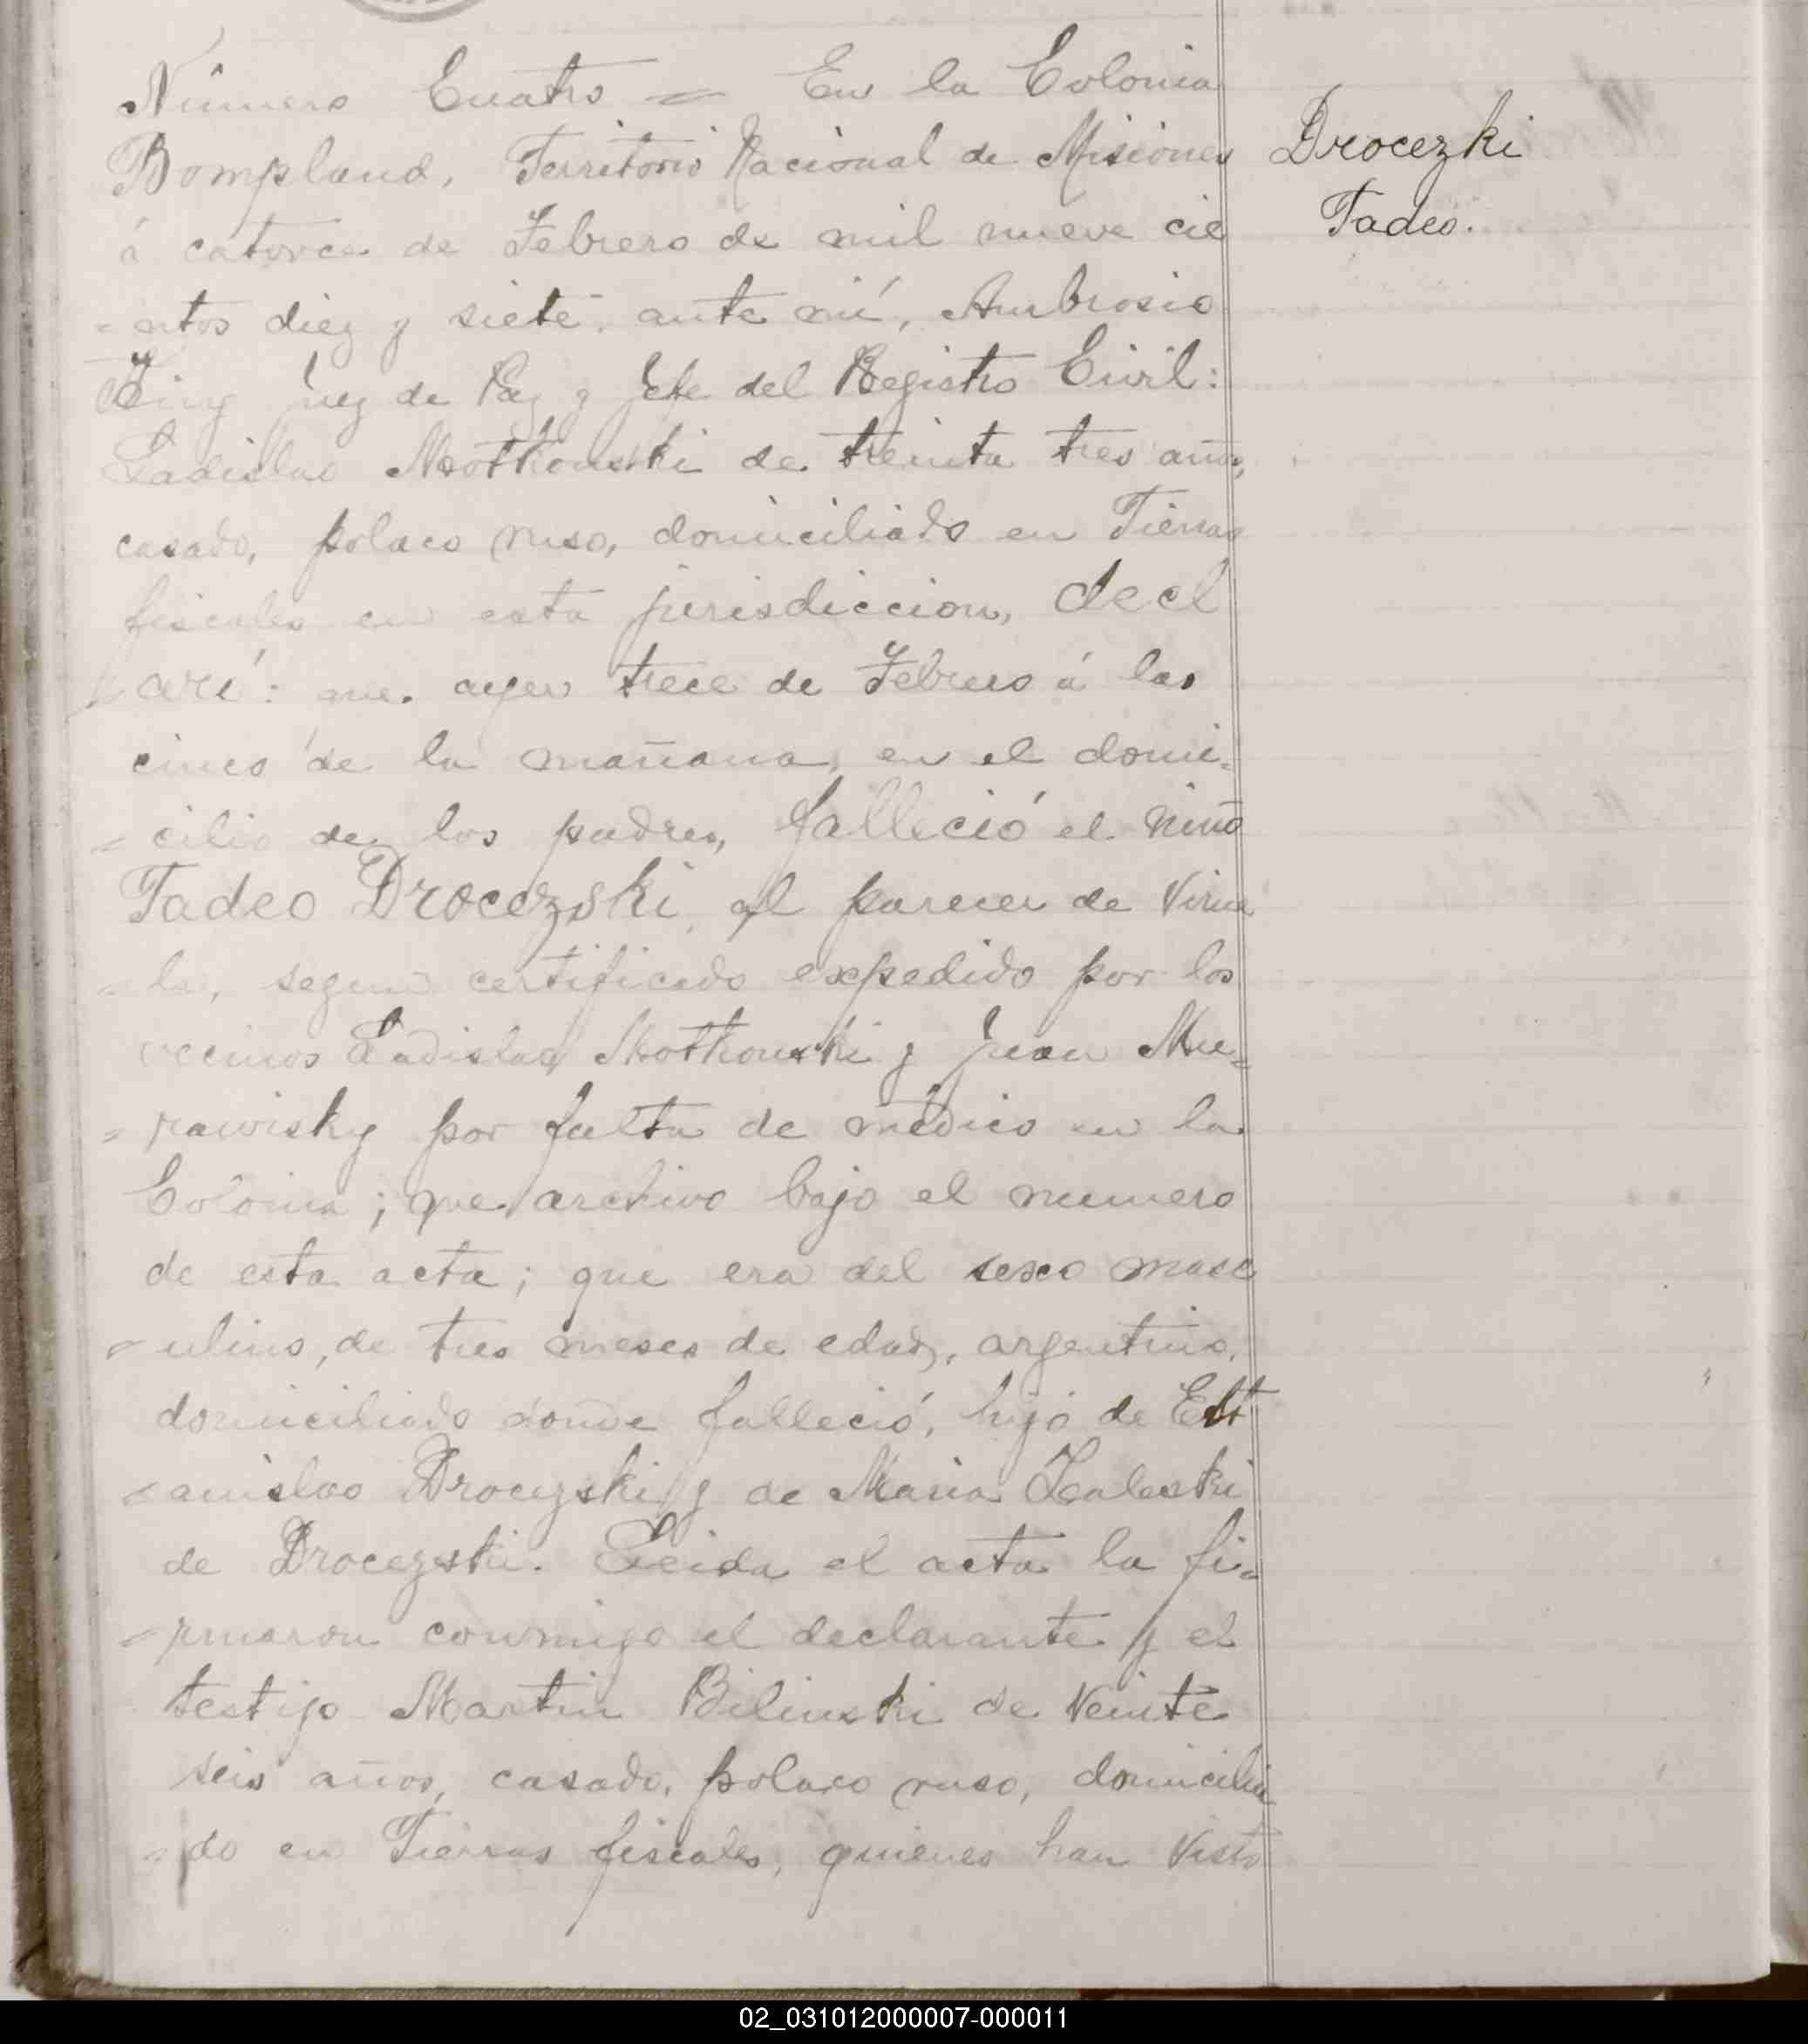 Número Cuatro = En la Colonia
Bompland, Territorio Nacional de Misiones
á catorce de Febrero de mil nueve cie
=ntos diez y siete, ante mí, Ambrosio
Juez de Paz y Jefe del Registro Civil:
Ladislao Motkouski de treinta tres años,
casado, polaco ruso, domiciliado en Tierras
fiscales en esta jurisdiccion, decl
aró: que ayer trece de Febrero á las
cinco de la mañana, en el domi=
=cilio de los padres, falleció el niño
Tadeo Drocezski, al parecer de Virue
=la, segun certificado expedido por los
vecinos Ladislao Motkouski y Juan Mu=
=rawisky por falta de médico en la
Colonia; que archivo bajo el numero
de esta acta; que era del sexo masc
=ulino, de tres meses de edad, argentino,
domiciliado donde falleció, hijo de Est
=anislao Drocezski y de Maria Zaleski
de Drocezski. Leida el acta la fi=
=rmaron conmigo el declarante y el
testigo Martin Bilinski de veinte
seis años, casado, polaco ruso, domicilia
=do en Tierras fiscales, quienes han visto
Drocezki
Tadeo.
02_031012000007-000011